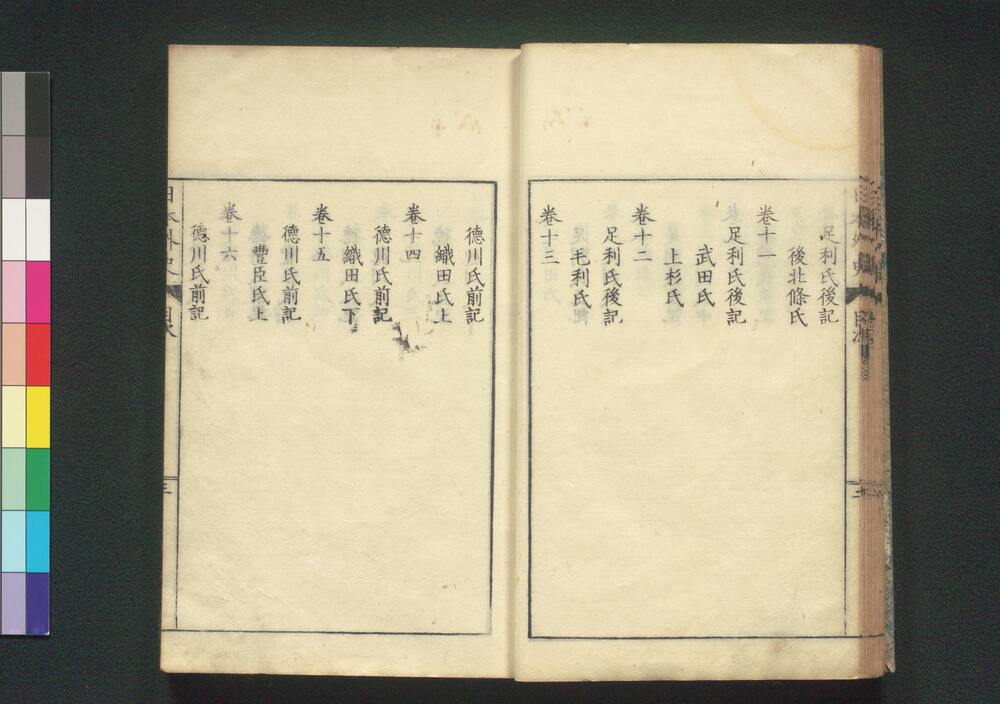 足利氏後記
後北條氏
卷十一
足利氏後記
武田氏
上杉氏
卷十二
足利氏後記
毛利氏
卷十三
德川氏前記
織田氏上
卷十四
德川氏前記
織田氏下
卷十五
德川氏前記
豐臣氏上
卷十六
德川氏前記
日本外史
目次
三